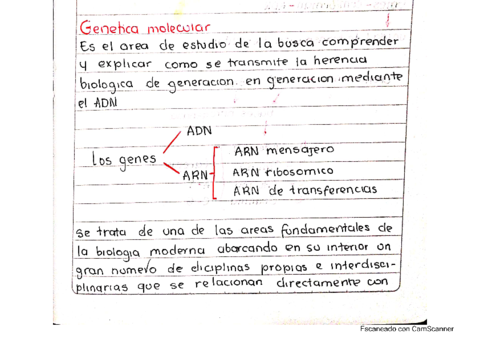 Genetica molecular
Es el area de estudio de la busca comprender
y explicar como se transmite la herencia
biologica de generacion en generacion mediante
el ADN
ADN
Los genes
ARN
ARN mensajero
ARN ribosomico
ARN de transferencias
se trata de una de las areas fundamentales de
la biologia moderna abarcando en su interior un
gran numero de diciplinas propias e interdisci-
plinarias que se relacionan directamente con
Escaneado con CamScanner